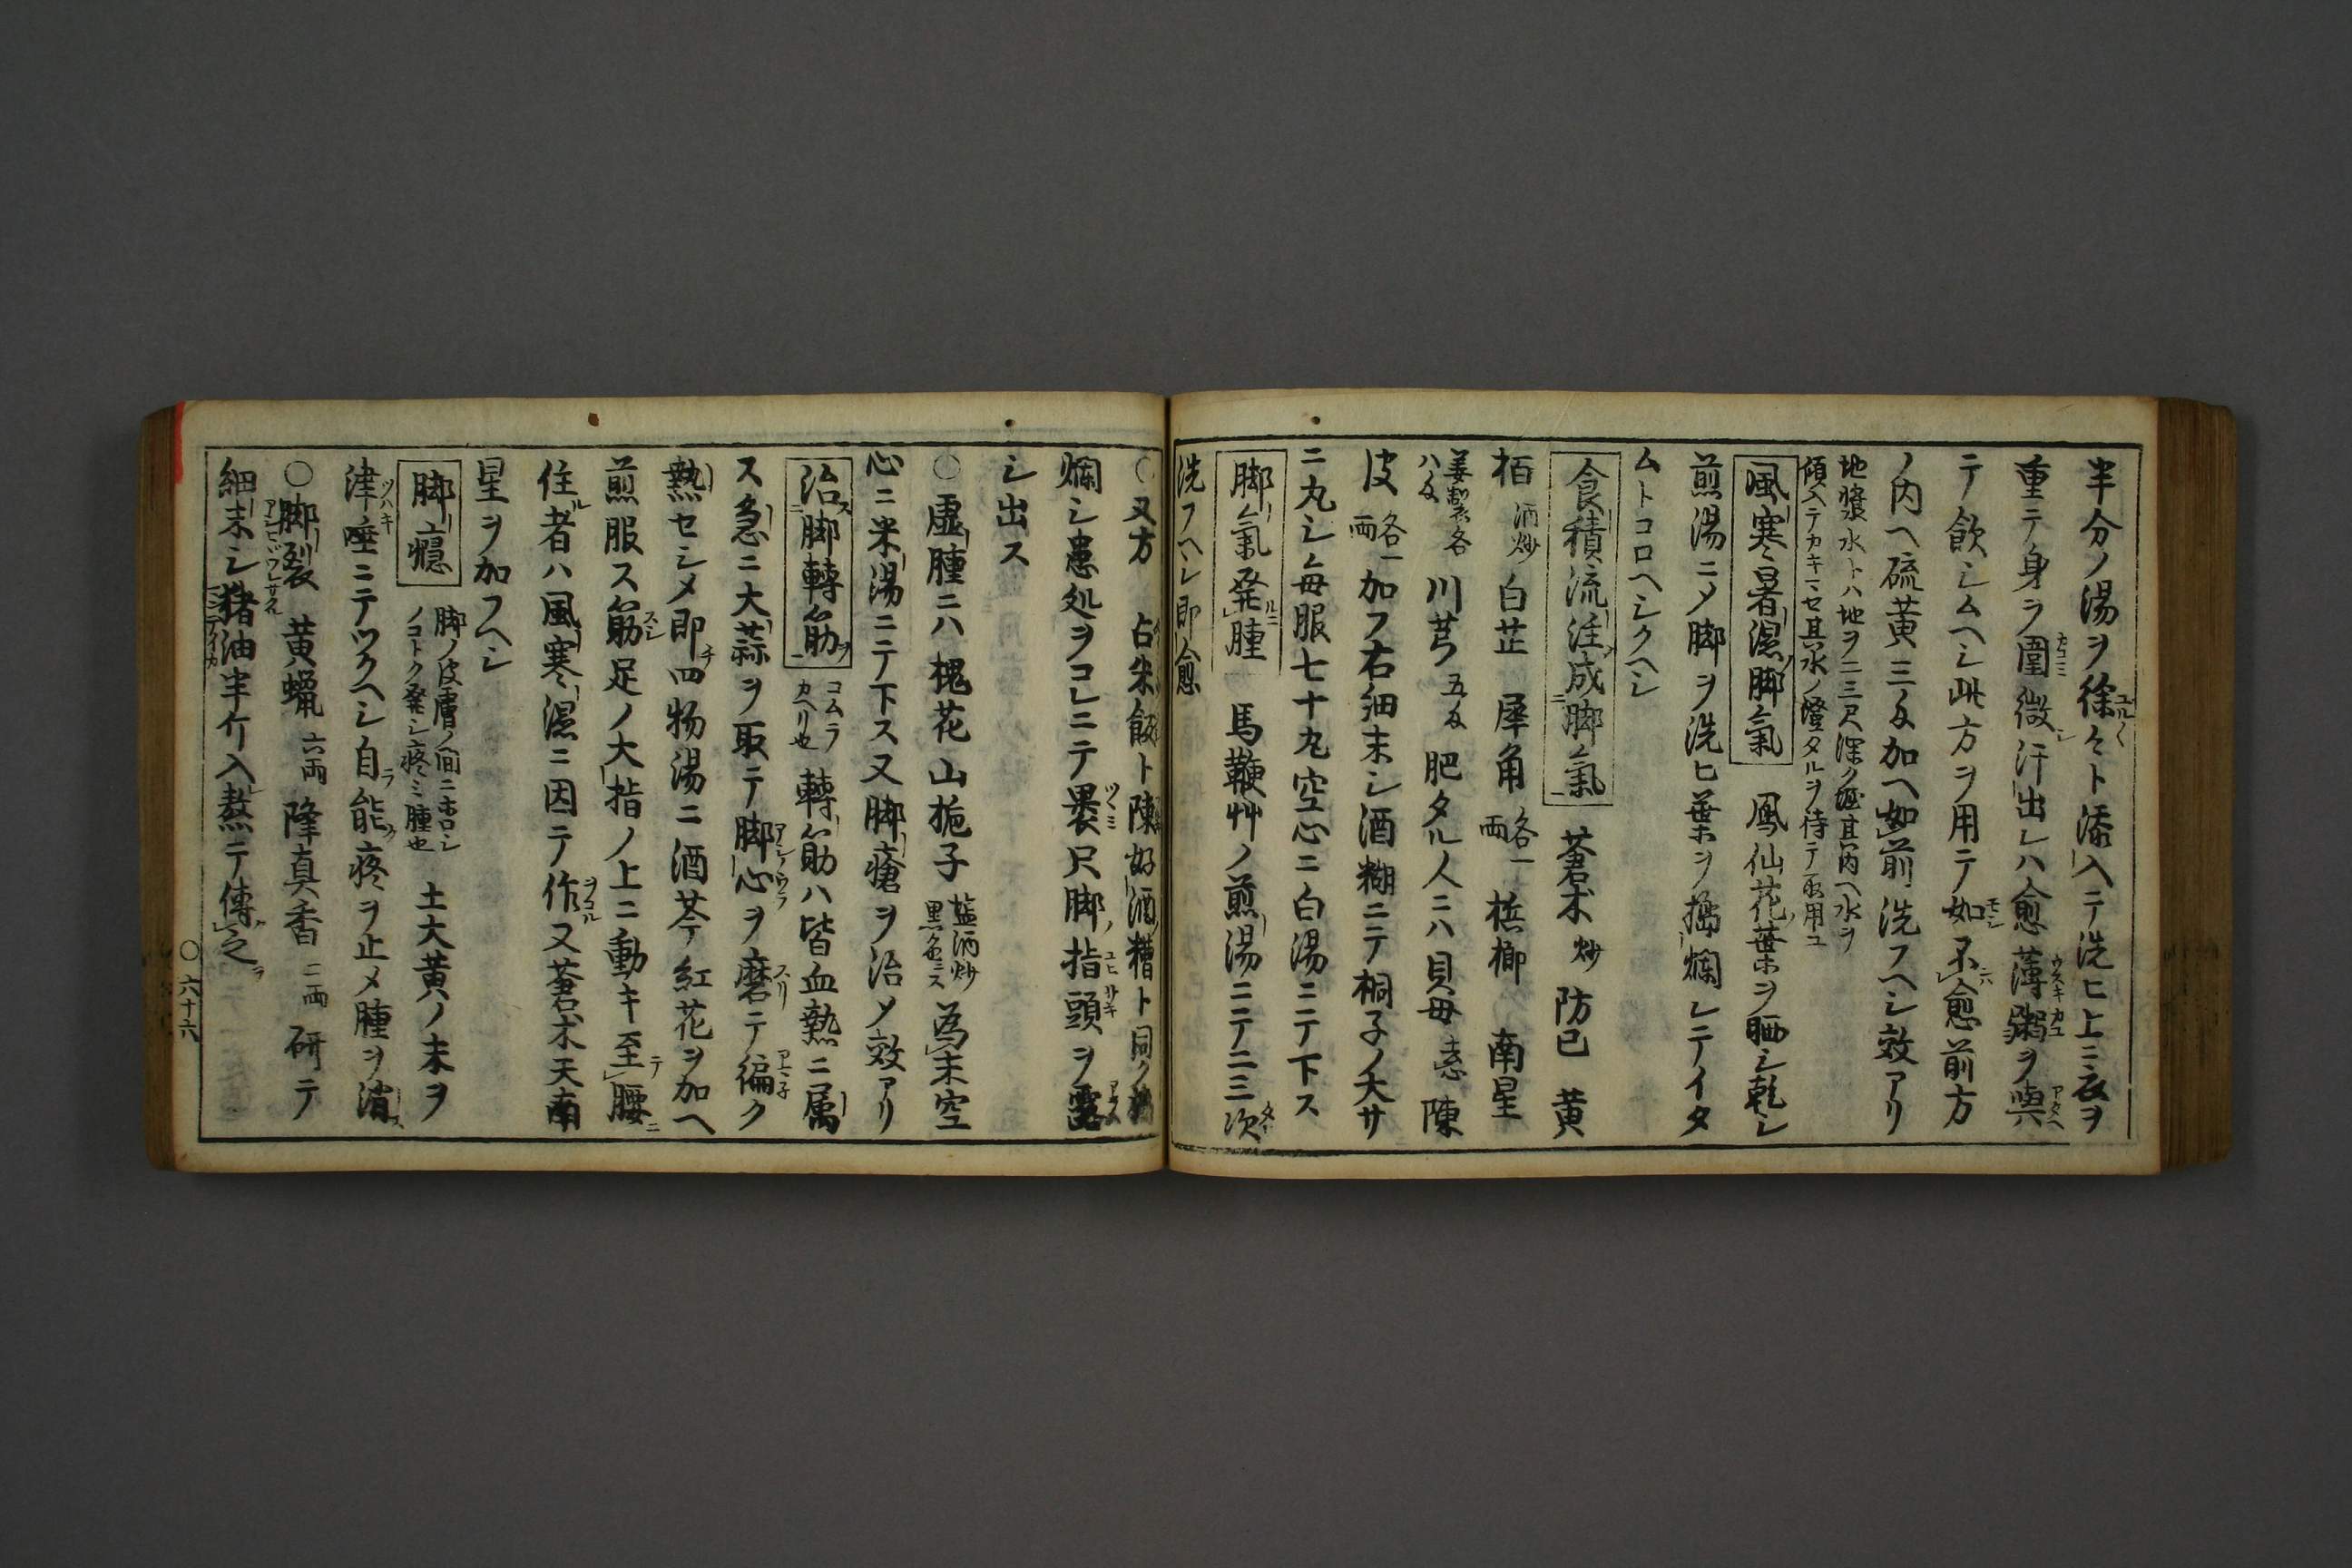 半分ノ湯ヲ徐々ト添入テ洗ヒ上ニ衣ヲ
重テ身ヲ圍微汗出レハ愈薄粥ヲ與
テ飲シムヘシ此方ヲ用テ如不愈前方
ノ内ヘ硫黄三匁加ヘ如前洗フヘシ效アリ
地漿水トハ地ヲ二三尺深ク堀其内ヘ水ヲ
傾入テカキマセ其水ノ澄タルヲ待テ取用ユ
風寒暑濕脚氣 鳳仙花葉ホヲ晒シ乾シ
煎湯ニメ脚ヲ洗ヒ葉ホヲ擣爛レテイタ
ムトコロヘシクヘシ
食積流注成脚氣 蒼朮炒 防已 黄
栢酒炒 白芷 犀角各一両 檳榔 南星
姜製各八匁 川芎五匁 肥タル人ニハ貝母 陳
皮各一両 加フ右細末シ酒糊ニテ桐子ノ大サ
ニ丸シ毎服七十丸空心ニ白湯ニテ下ス
脚氣発腫 馬鞭艸ノ煎湯ニテ二三次
洗フヘシ即愈
〇又方 占米飯ト陳好酒糟ト同ク
爛シ患処ヲコレニテ褁只脚指頭ヲ露
シ出ス
〇虚腫ニハ槐花山梔子塩酒炒黒色ニス為末空
心ニ米湯ニテ下ス又脚瘡ヲ治メ效アリ
治脚轉筋コムラカヘリ也 轉筋ハ皆血熱ニ属
ス急ニ大蒜ヲ取テ脚心ヲ磨テ徧ク
熱セシメ即四物湯ニ酒芩紅花ヲ加ヘ
煎服ス筋足ノ大指ノ上ニ動キ至腰
住者ハ風寒濕ニ因テ作又蒼朮天南
星ヲ加フヘシ
脚癮 脚ノ皮膚ノ間ニホロシノコトク発シ疼ミ腫也 土大黄ノ末ヲ
津唾ニテツクヘシ自能疼ヲ止メ腫ヲ消
〇脚裂 黄蝋六両 降真香二両 研テ
細末シ猪油半斤入熬テ傅之
〇六十六